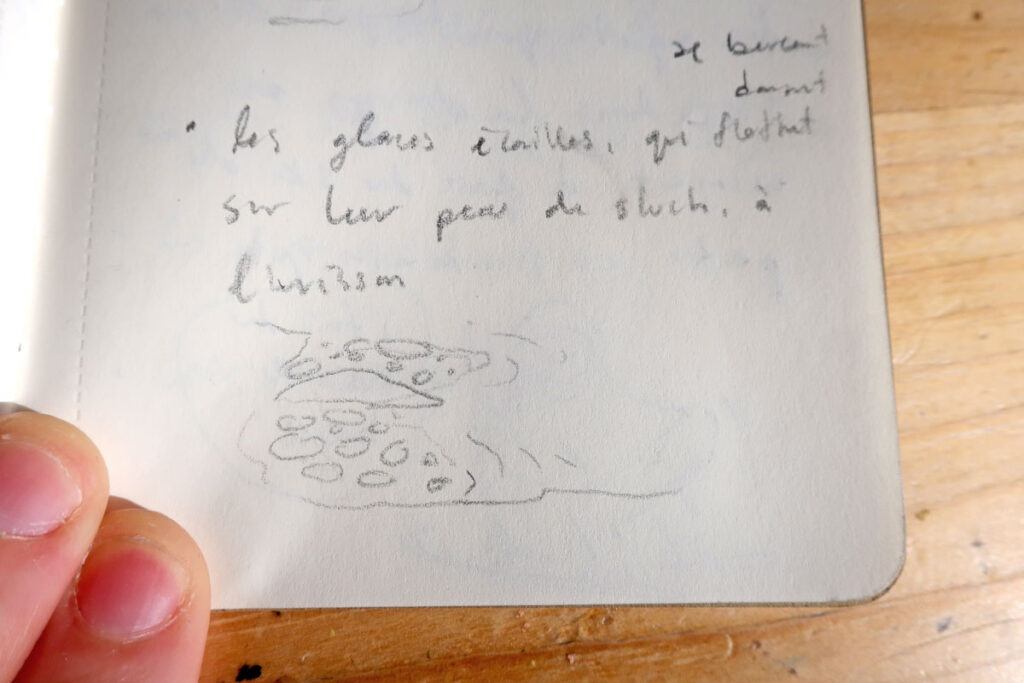 se bercent
dansent
• les glaces écailles, qui flottent
sur leur peau de slush, à
l'unisson